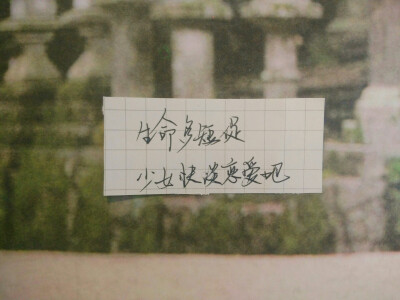 生命多短促
少女快谈恋爱吧